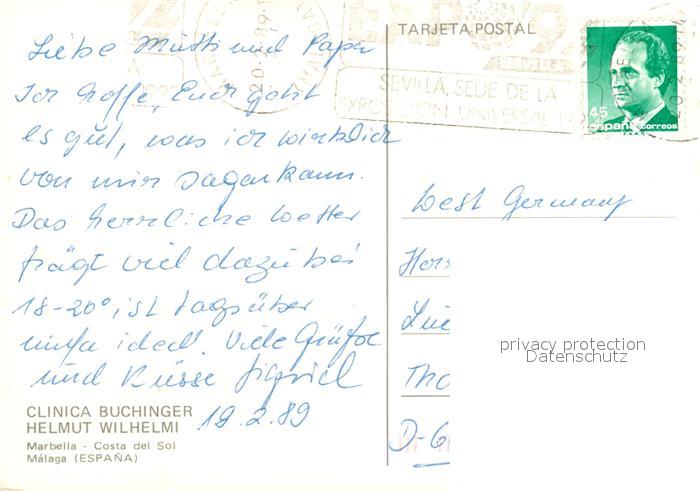 Liebe Mutti und Papa
Ich hoffe, Euch geht
es gut, was ich wirklich
von mir sagen kann.
Das herrliche Wetter
trägt viel dazu bei
18-20° ist tagsüber
ideal. Viele Grüße
und Küsse Sigrid
19.2.89
CLINICA BUCHINGER
HELMUT WILHELMI
Marbella - Costa del Sol
Málaga (ESPAÑA)
TARJETA POSTAL
EXPO '92
SEVILLA, SEDE DE LA
EXPOSICION UNIVERSAL
45
españa correos
West Germany
D-6
privacy protection
Datenschutz